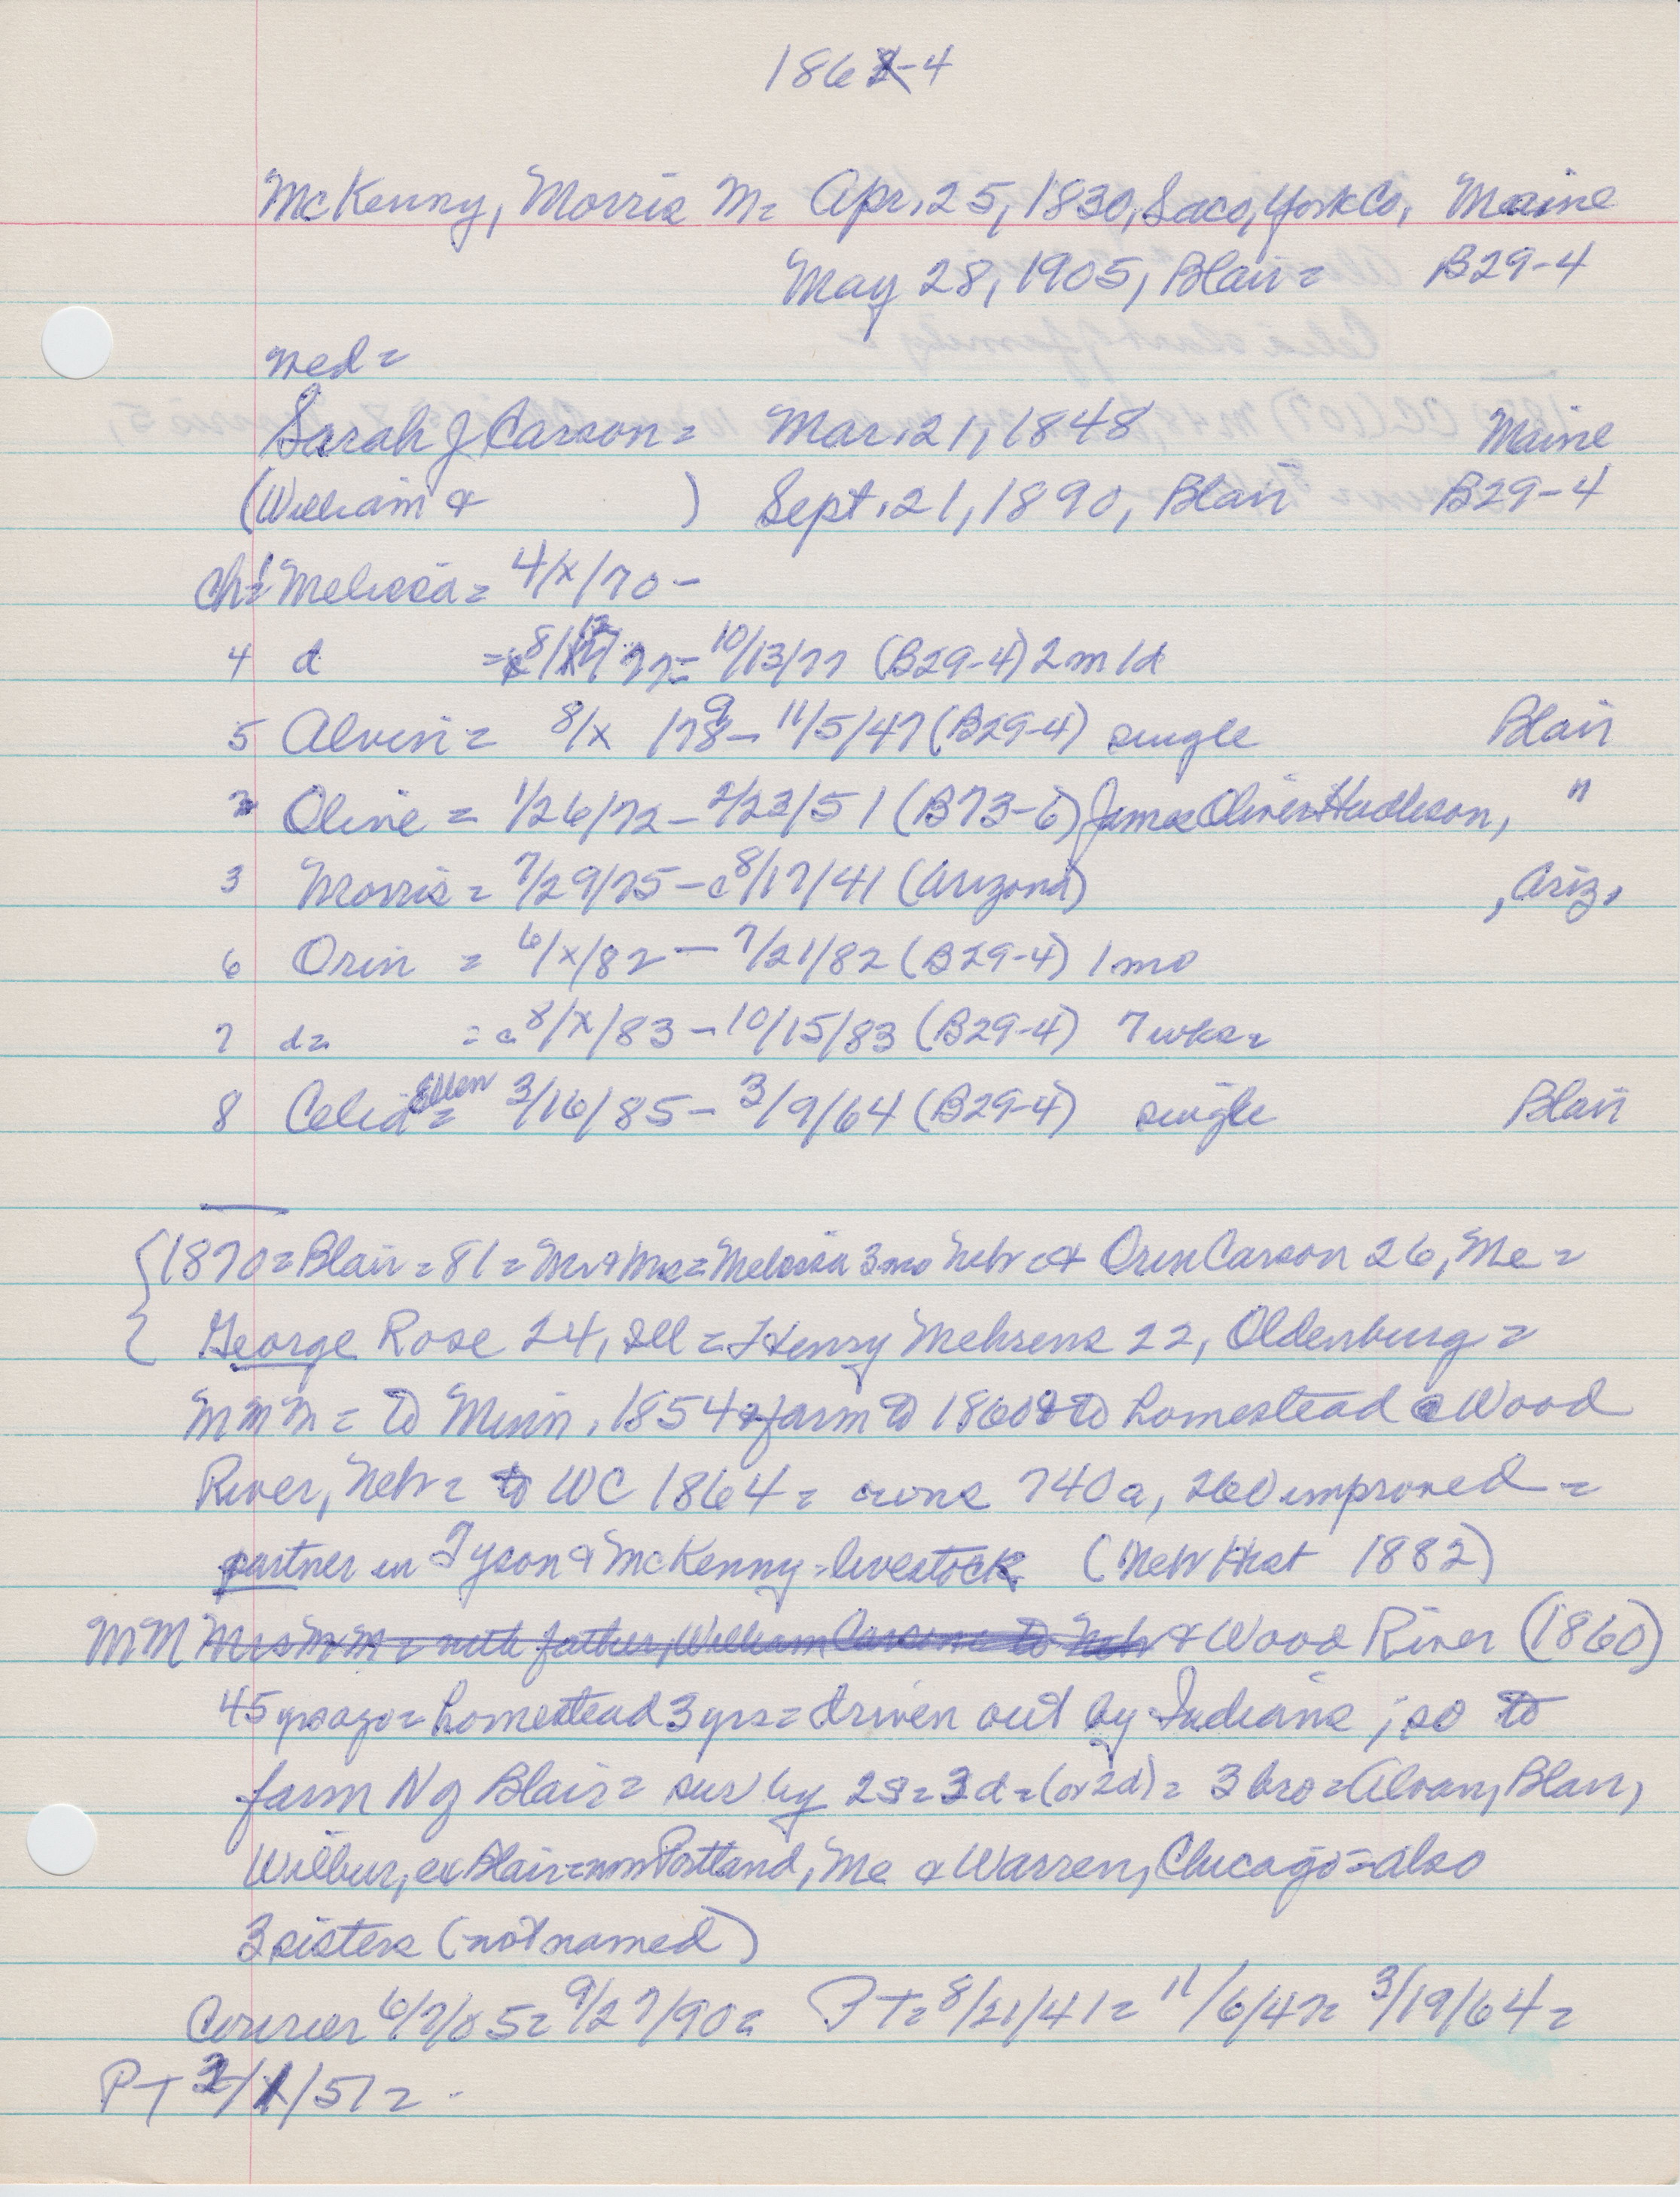 186 -4
McKenny, Morris M= Apr. 25, 1830, Saco, York Co, Maine
May 28, 1905, Blair= B29-4
med=
Sarah J Carson= Mar. 21, 1848 Maine
(William & ) Sept. 21, 1890, Blair B29-4
Ch=1 Melissa= 4/x/70-
4 d = 8/12/77= 10/13/77 (B29-4) 2m 1d
5 Alvin= 8/x /79- 11/5/47 (B29-4) single Blair
2 Olive = 1/26/72- 2/23/51 (B73-6) James Oliver Hudleson, "
3 Morris= 7/29/75-c8/17/41 (Arizona) , Ariz,
6 Orin = 6/x/82- 7/21/82 (B29-4) 1mo
7 d= =c8/x/83-10/15/83 (B29-4) 7wks=
8 Celia Ellen= 3/16/85- 3/9/64 (B29-4) single Blair
{1870=Blair=81=Mr+Mrs=Melissa 3mo Nebr=& Orin Carson 26, Me=
{ George Rose 24, Ill=Henry Mehrens 22, Oldenburg=
M M M = to Minn, 1854&farm to 1860&to homestead @ Wood
River, Nebr= to WC 1864= owns 740a, 260 improved=
partner in Tyson & McKenny=livestock (Nebr Hist 1882)
MM Mrs M M= with father, William Carson= to Nebr & Wood River (1860)
45 yrs ago=homestead 3 yrs=driven out by Indians; so to
farm N of Blair= sur by 2s=3d=(or 2d)= 3 bro=Alvan, Blair,
Wilbur, ex Blair=now Portland, Me & Warren, Chicago=also
3 sisters (not named)
Courier 6/7/05= 9/27/90= PT=8/21/41= 11/6/47= 3/19/64=
PT /51=